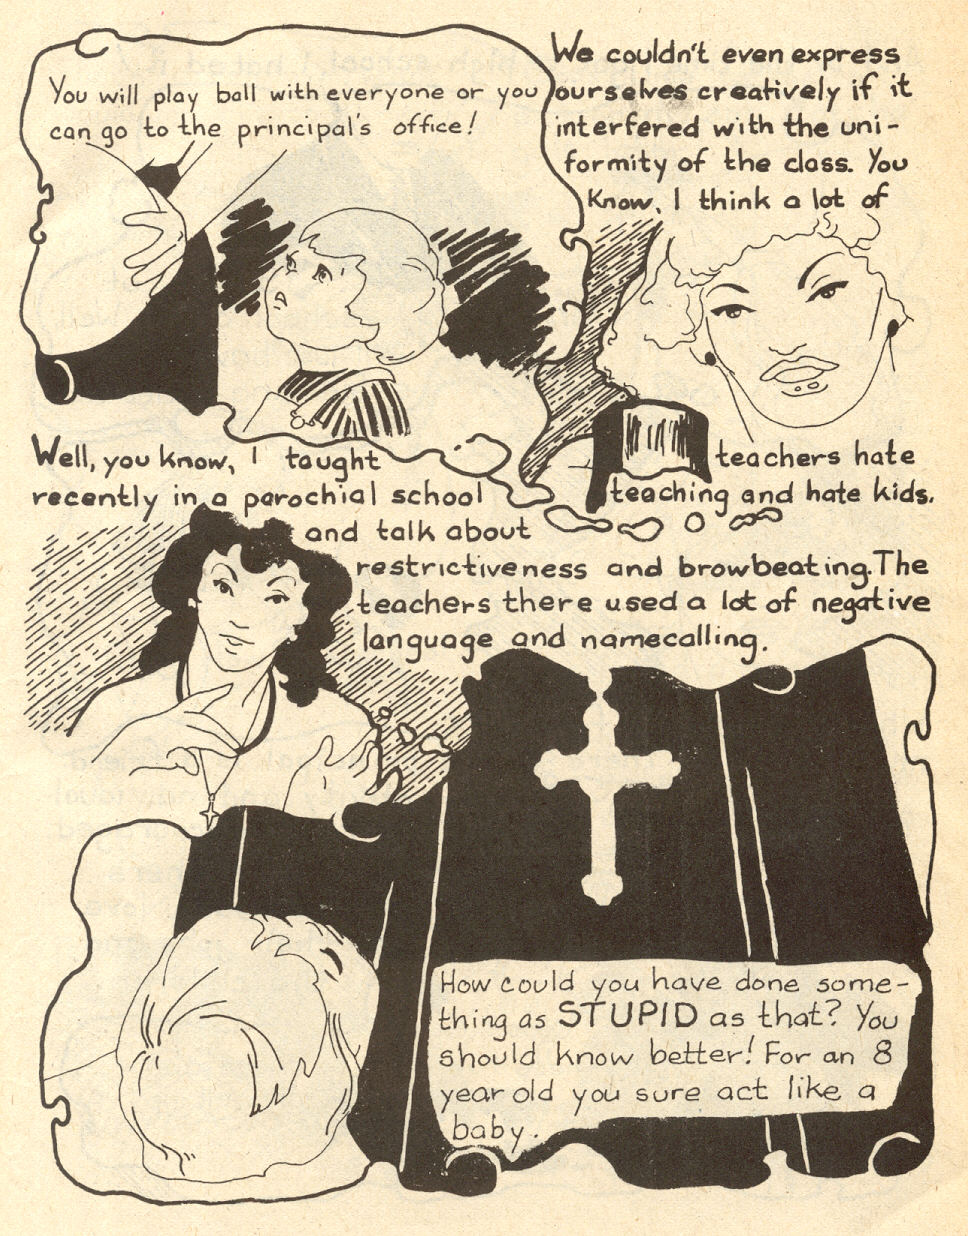 You will play ball with everyone or you
can go to the principal's office!
We couldn't even express
ourselves creatively if it
interfered with the uni-
formity of the class. You
Know, I think a lot of
teachers hate
teaching and hate kids.
Well, you know, I taught
recently in a parochial school
and talk about
restrictiveness and browbeating. The
teachers there used a lot of negative
language and namecalling.
How could you have done some-
thing as STUPID as that? You
should know better! For an 8
year old you sure act like a
baby.